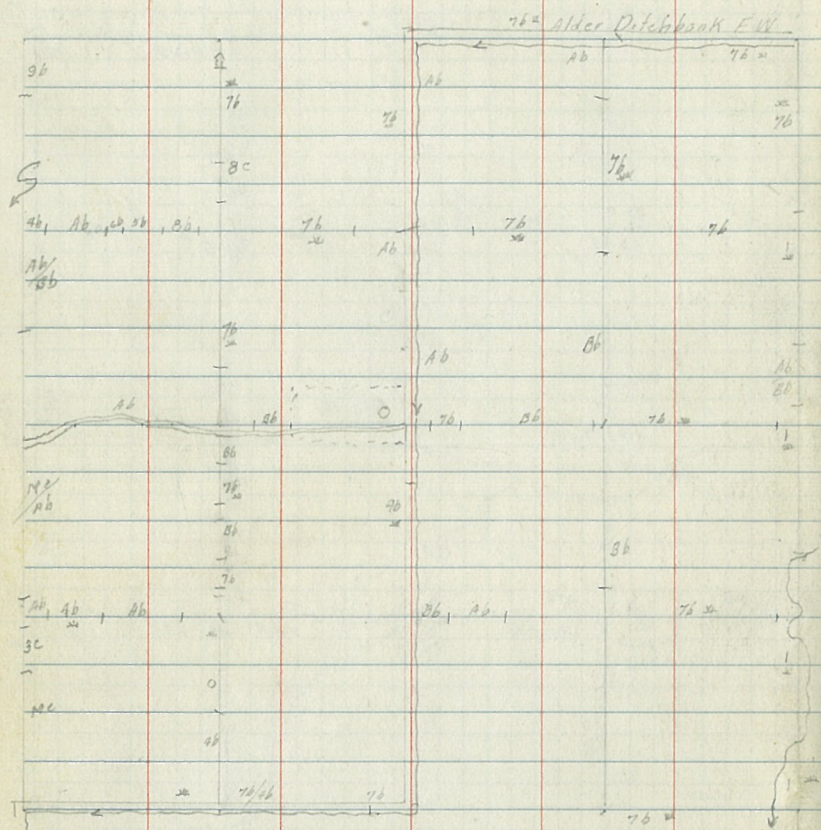 7b Alder Ditchbank F W
Ab 7b
9b
Ab
7b
7b 7b
8c 7b
4b Ab 5b Bb 7b 7b 7b
Ab
Ab/Bb
7b
Bb
Ab
Ab
Bb
Ab
Bb 7b Bb 7b
Bb
7b
Ab
9b
Bb
Bb
7b
Ab 4b Ab Bb Ab 7b
3c
Mc
4b
7b/4b 7b
7b